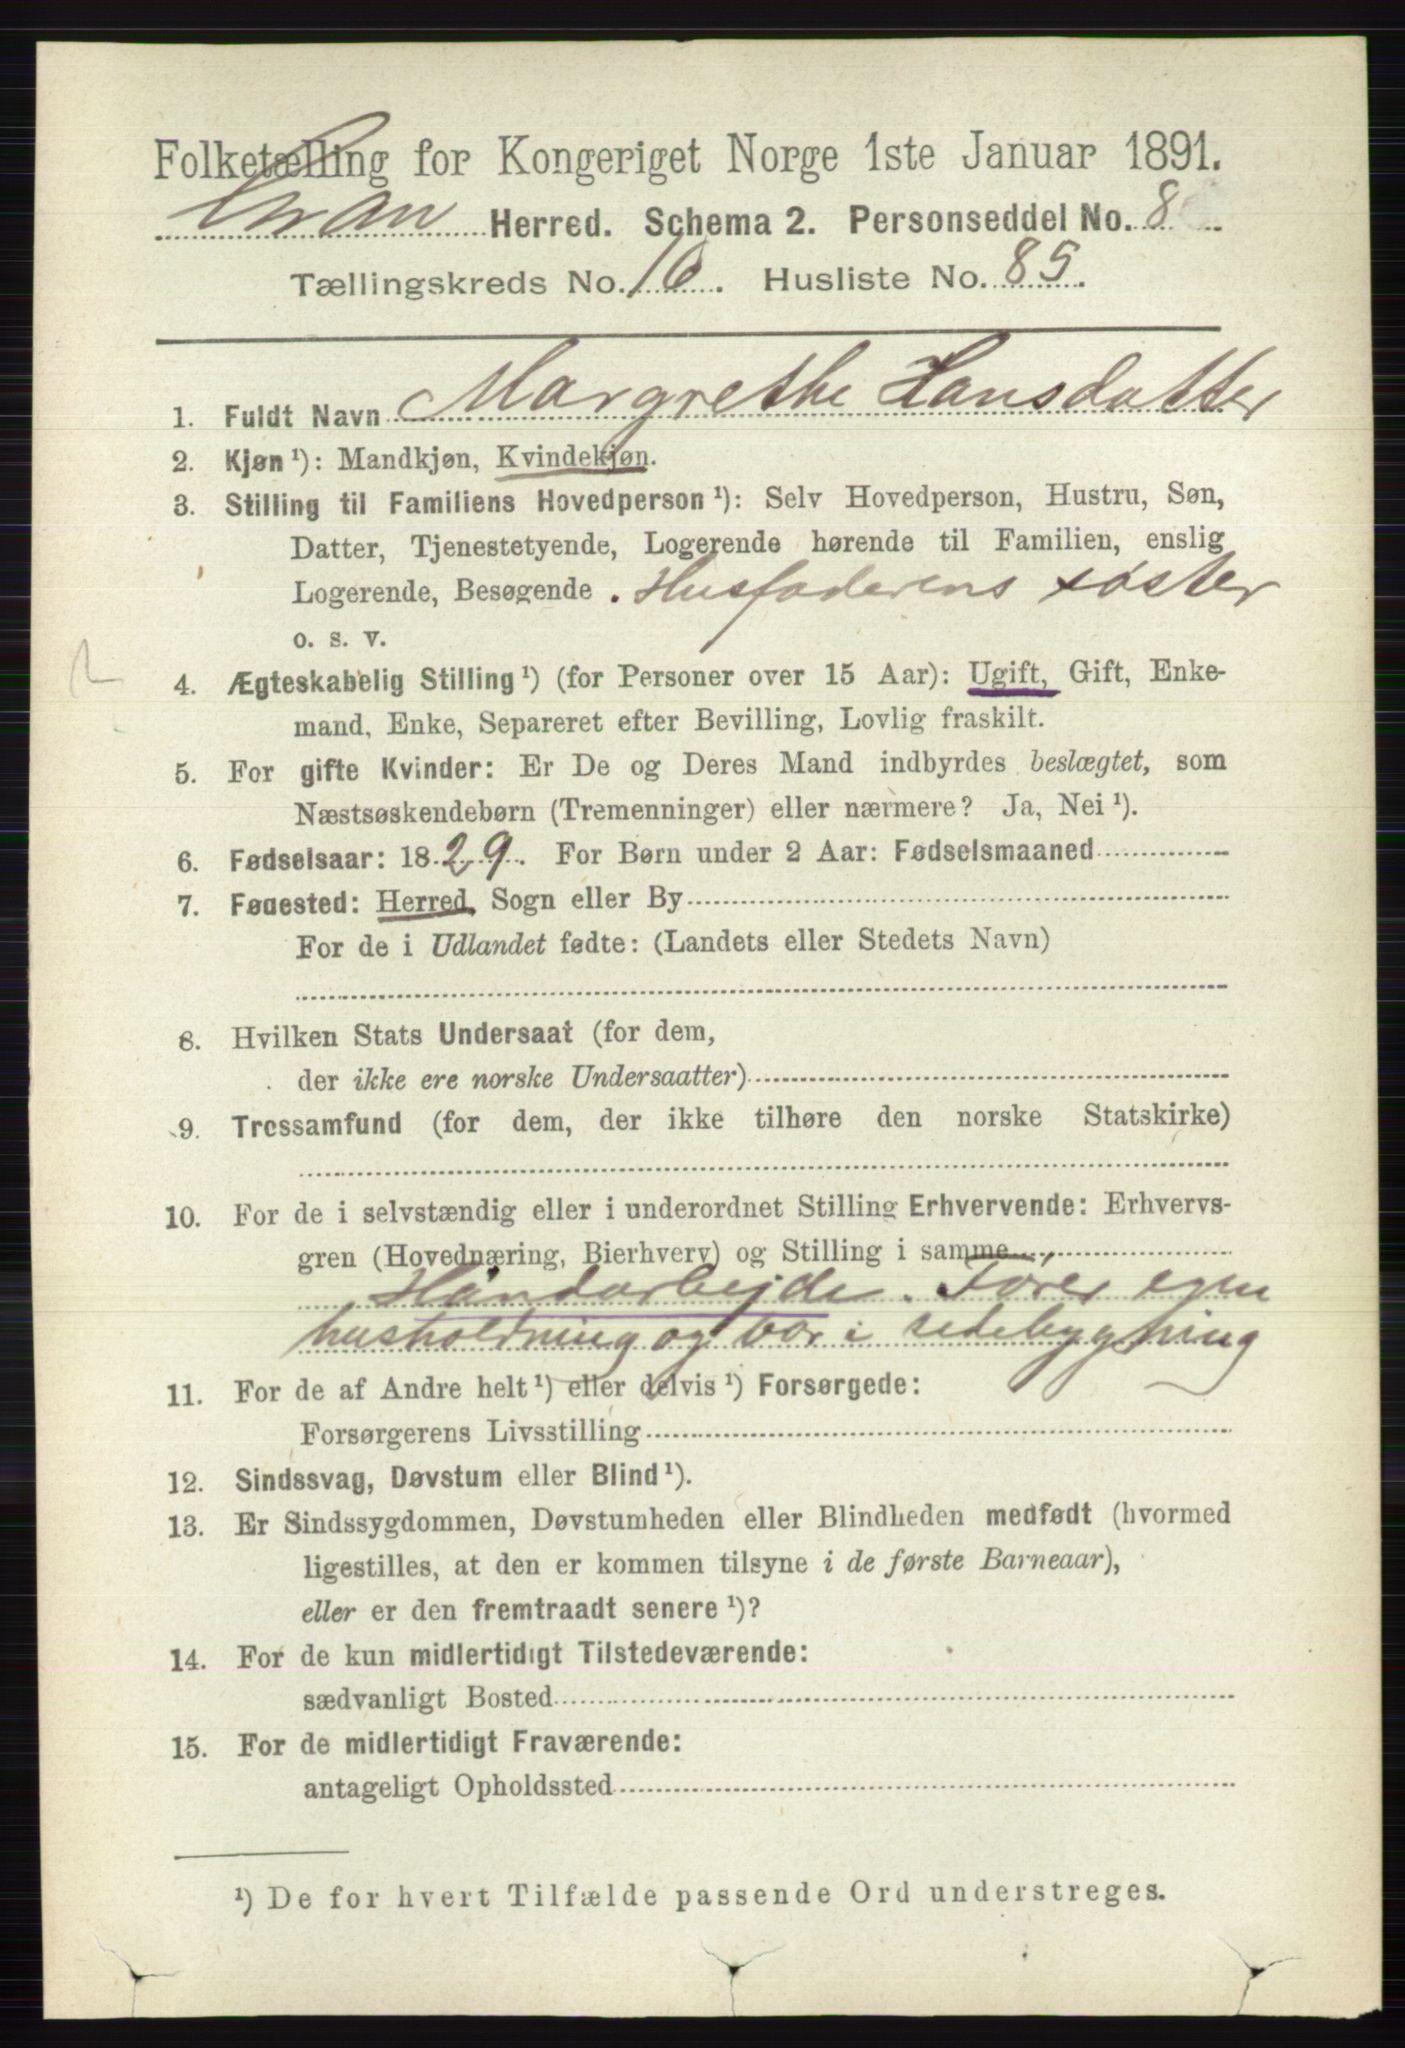 Folketælling for Kongeriget Norge 1ste Januar 1891.
Gran Herred. Schema 2. Personseddel No. 8
Tællingskreds No. 10. Husliste No. 85.
1. Fuldt Navn Margrethe Hansdatter
2. Kjøn ¹): Mandkjøn, Kvindekjøn.
3. Stilling til Familiens Hovedperson ¹): Selv Hovedperson, Hustru, Søn,
Datter, Tjenestetyende, Logerende hørende til Familien, enslig
Logerende, Besøgende . Husfaderens søster
o. s. v.
4. Ægteskabelig Stilling ¹) (for Personer over 15 Aar): Ugift, Gift, Enke-
mand, Enke, Separeret efter Bevilling, Lovlig fraskilt.
5. For gifte Kvinder: Er De og Deres Mand indbyrdes beslægtet, som
Næstsøskendebørn (Tremenninger) eller nærmere? Ja, Nei ¹).
6. Fødselsaar: 1829. For Børn under 2 Aar: Fødselsmaaned
7. Føuested: Herred, Sogn eller By
For de i Udlandet fødte: (Landets eller Stedets Navn)
8. Hvilken Stats Undersaat (for dem,
der ikke ere norske Undersaatter)
9. Trossamfund (for dem, der ikke tilhøre den norske Statskirke)
10. For de i selvstændig eller i underordnet Stilling Erhvervende: Erhvervs-
gren (Hovednæring, Bierhverv) og Stilling i samme
Håndarbejde. Fører egen
husholdning og bor i sidebygning
11. For de af Andre helt ¹) eller delvis ¹) Forsørgede:
Forsørgerens Livsstilling
12. Sindssvag, Døvstum eller Blind ¹).
13. Er Sindssygdommen, Døvstumheden eller Blindheden medfødt (hvormed
ligestilles, at den er kommen tilsyne i de første Barneaar),
eller er den fremtraadt senere ¹)?
14. For de kun midlertidigt Tilstedeværende:
sædvanligt Bosted
15. For de midlertidigt Fraværende:
antageligt Opholdssted
¹) De for hvert Tilfælde passende Ord understreges.